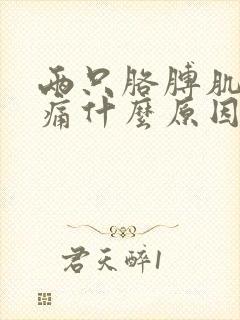 两只胳膊肌
痛什麼原因
君天醉1